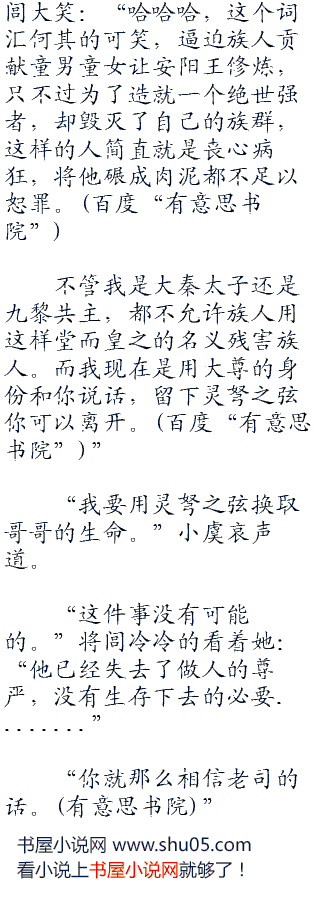 闾大笑：“哈哈哈，这个词
汇何其的可笑，逼迫族人贡
献童男童女让安阳王修炼，
只不过为了造就一个绝世强
者，却毁灭了自己的族群，
这样的人简直就是丧心病
狂，将他碾成肉泥都不足以
恕罪。(百度“有意思书
院”)
不管我是大秦太子还是
九黎共主，都不允许族人用
这样堂而皇之的名义残害族
人。而我现在是用大尊的身
份和你说话，留下灵弩之弦
你可以离开。(百度“有意思
书院”)”
“我要用灵弩之弦换取
哥哥的生命。”小虞哀声
道。
“这件事没有可能
的。”将闾冷冷的看着她：
“他已经失去了做人的尊
严，没有生存下去的必要.
.......”
“你就那么相信老司的
话。(有意思书院)”
书屋小说网 www.shu05.com
看小说上书屋小说网就够了！